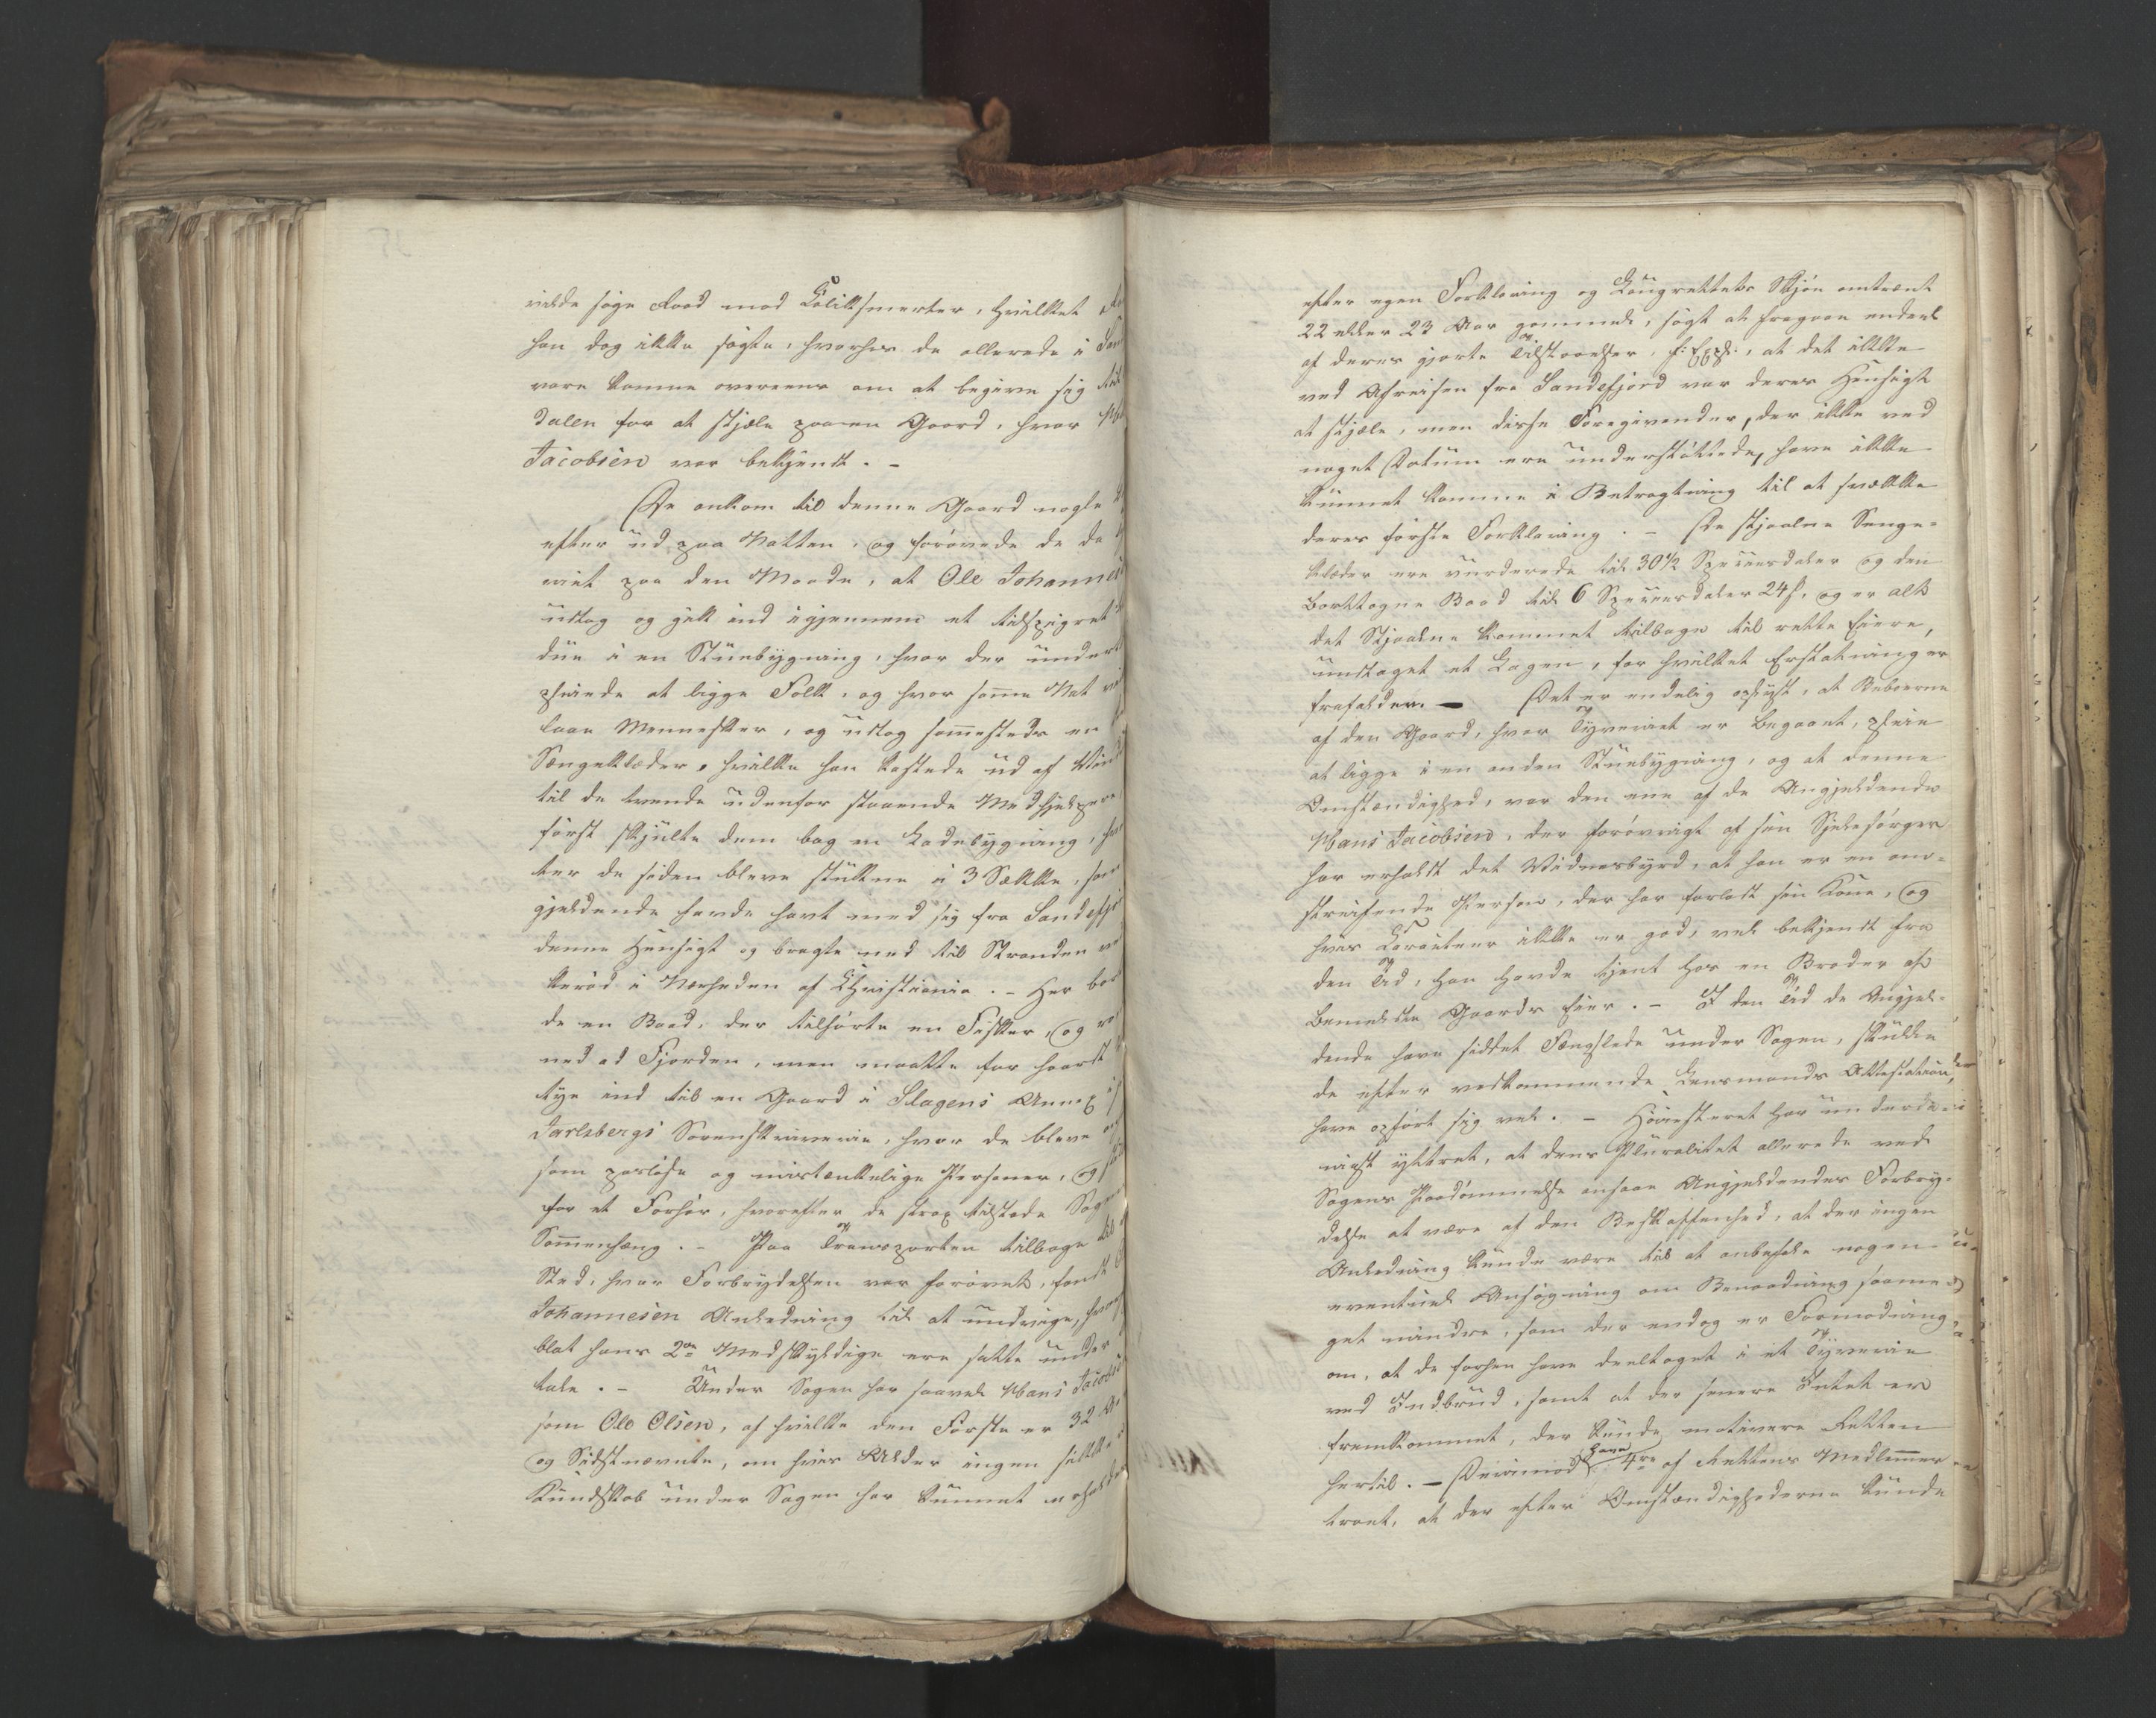 vilde søge Raad mod Koliksmerter, hvilket
han dog ikke søgte, hvorhos de allerede i
vare komne overeens om at begive sig til
dalen for at stjæle paa en Gaard, hvor
Jacobsen var bekjendt. -
De ankom til denne Gaard nogle
efter ud paa Natten, og forøvede de
riet paa den Maade, at Ole Johannes
udtog og gik ind igjennem et tilspigret
due i en Stuebygning, hvor der
pleiede at ligge Folk, og hvor samme Nat
laae Mennesker, og udtog sammesteds en
Sængeklæder, hvilke han kastede ud af
til de tvende udenfor staaende Medhjelpere
først skjulte dem bag en Ladebygning,
ter de siden bleve stukne i 3 Sække, som
gjeldende havde havt med sig fra Sandefjor
denne Hensigt og bragte ned til Stranden
i Nærheden af Christiania. - Her
de en Baad, der tilhørte en Fisker, og
ned ad Fjorden, men maatte for haardt
tye ind til en Gaard i Slagens Annex
Jarlsbergs Sorenskriverie, hvor de bleve
som pasløse og mistænkelige Personer, og
for et Forhør, hvorefter de strax tilstode
Sammenhæng. - Paa Transporten tilbage til
Sted, hvor Forbrydelsen var forøvet, fandt
Johannesen Anledning til at undvige,
blot hans 2de Medskyldige ere satte under
tale. - Under Sagen har saavel Hans Jacobs
som Ole Olsen, af hvilke den Første er 32
og Sidstnævnte, om hvis Alder ingen sikker
Kundskab under Sagen har kunnet erholdes
efter egen Forklaring og Laugrettets Skjøn omtrent
22 eller 23 Aar gammel, søgt at fragaae endeel
af deres gjorte Tilstaaelser, f: Expl:, at det ikke
ved Afreisen fra Sandefjord var deres Hensigt
at stjæle, men disse Foregivender, der ikke ved
noget Datum ere understøttede, have ikke
kunnet komme i Betragtning til at svække
deres første Forklaring. - De stjaalne Senge-
klæder ere vurderede til 30½ Speciesdaler og den
borttagne Baad til 6 Speciesdaler 24 s, og er alt
det Stjaalne kommet tilbage til rette Eiere,
undtaget et Lagen, for hvilket Erstatning er
frafalden. - Det er endelig oplyst, at Beboerne
af den Gaard, hvor Tyveriet er begaaet, pleie
at ligge i en anden Stuebygning, og at denne
Omstændighed, var den ene af de Angjeldende
Hans Jacobsen, der forøvrigt af sin Sjelesørger
har erholdt det Vidnesbyrd, at han er en om-
streifende Person, der har forladt sin Kone, og
hvis Caracteer ikke er god, vel bekjendt fra
den Tid, han havde tjent hos en Broder af
bemeldte Gaards Eier. - I den Tid de Angjel-
dende have siddet Fængslede under Sagen, skulle
de efter vedkommende Lensmands Attestationer
have opført sig vel. - Høiesteret har underda-
nigst yttret, at dens Pluralitet allerede ved
Sagens Paadømmelse ansaae Angjeldendes Forbry-
delse at være af den Beskaffenhed, at der ingen
Anledning kunde være til at anbefale nogen
eventuel Ansøgning om Benaadning saame-
get mindre, som der endog er Formodning
om, at de forhen have deeltaget i et Tyverie
ved Indbrud, samt at der senere Intet er
fremkommet, der kunde motivere Retten
hertil. - Derimod have 4re af Rettens Medlemmer
troet, at der efter Omstændighederne kunde